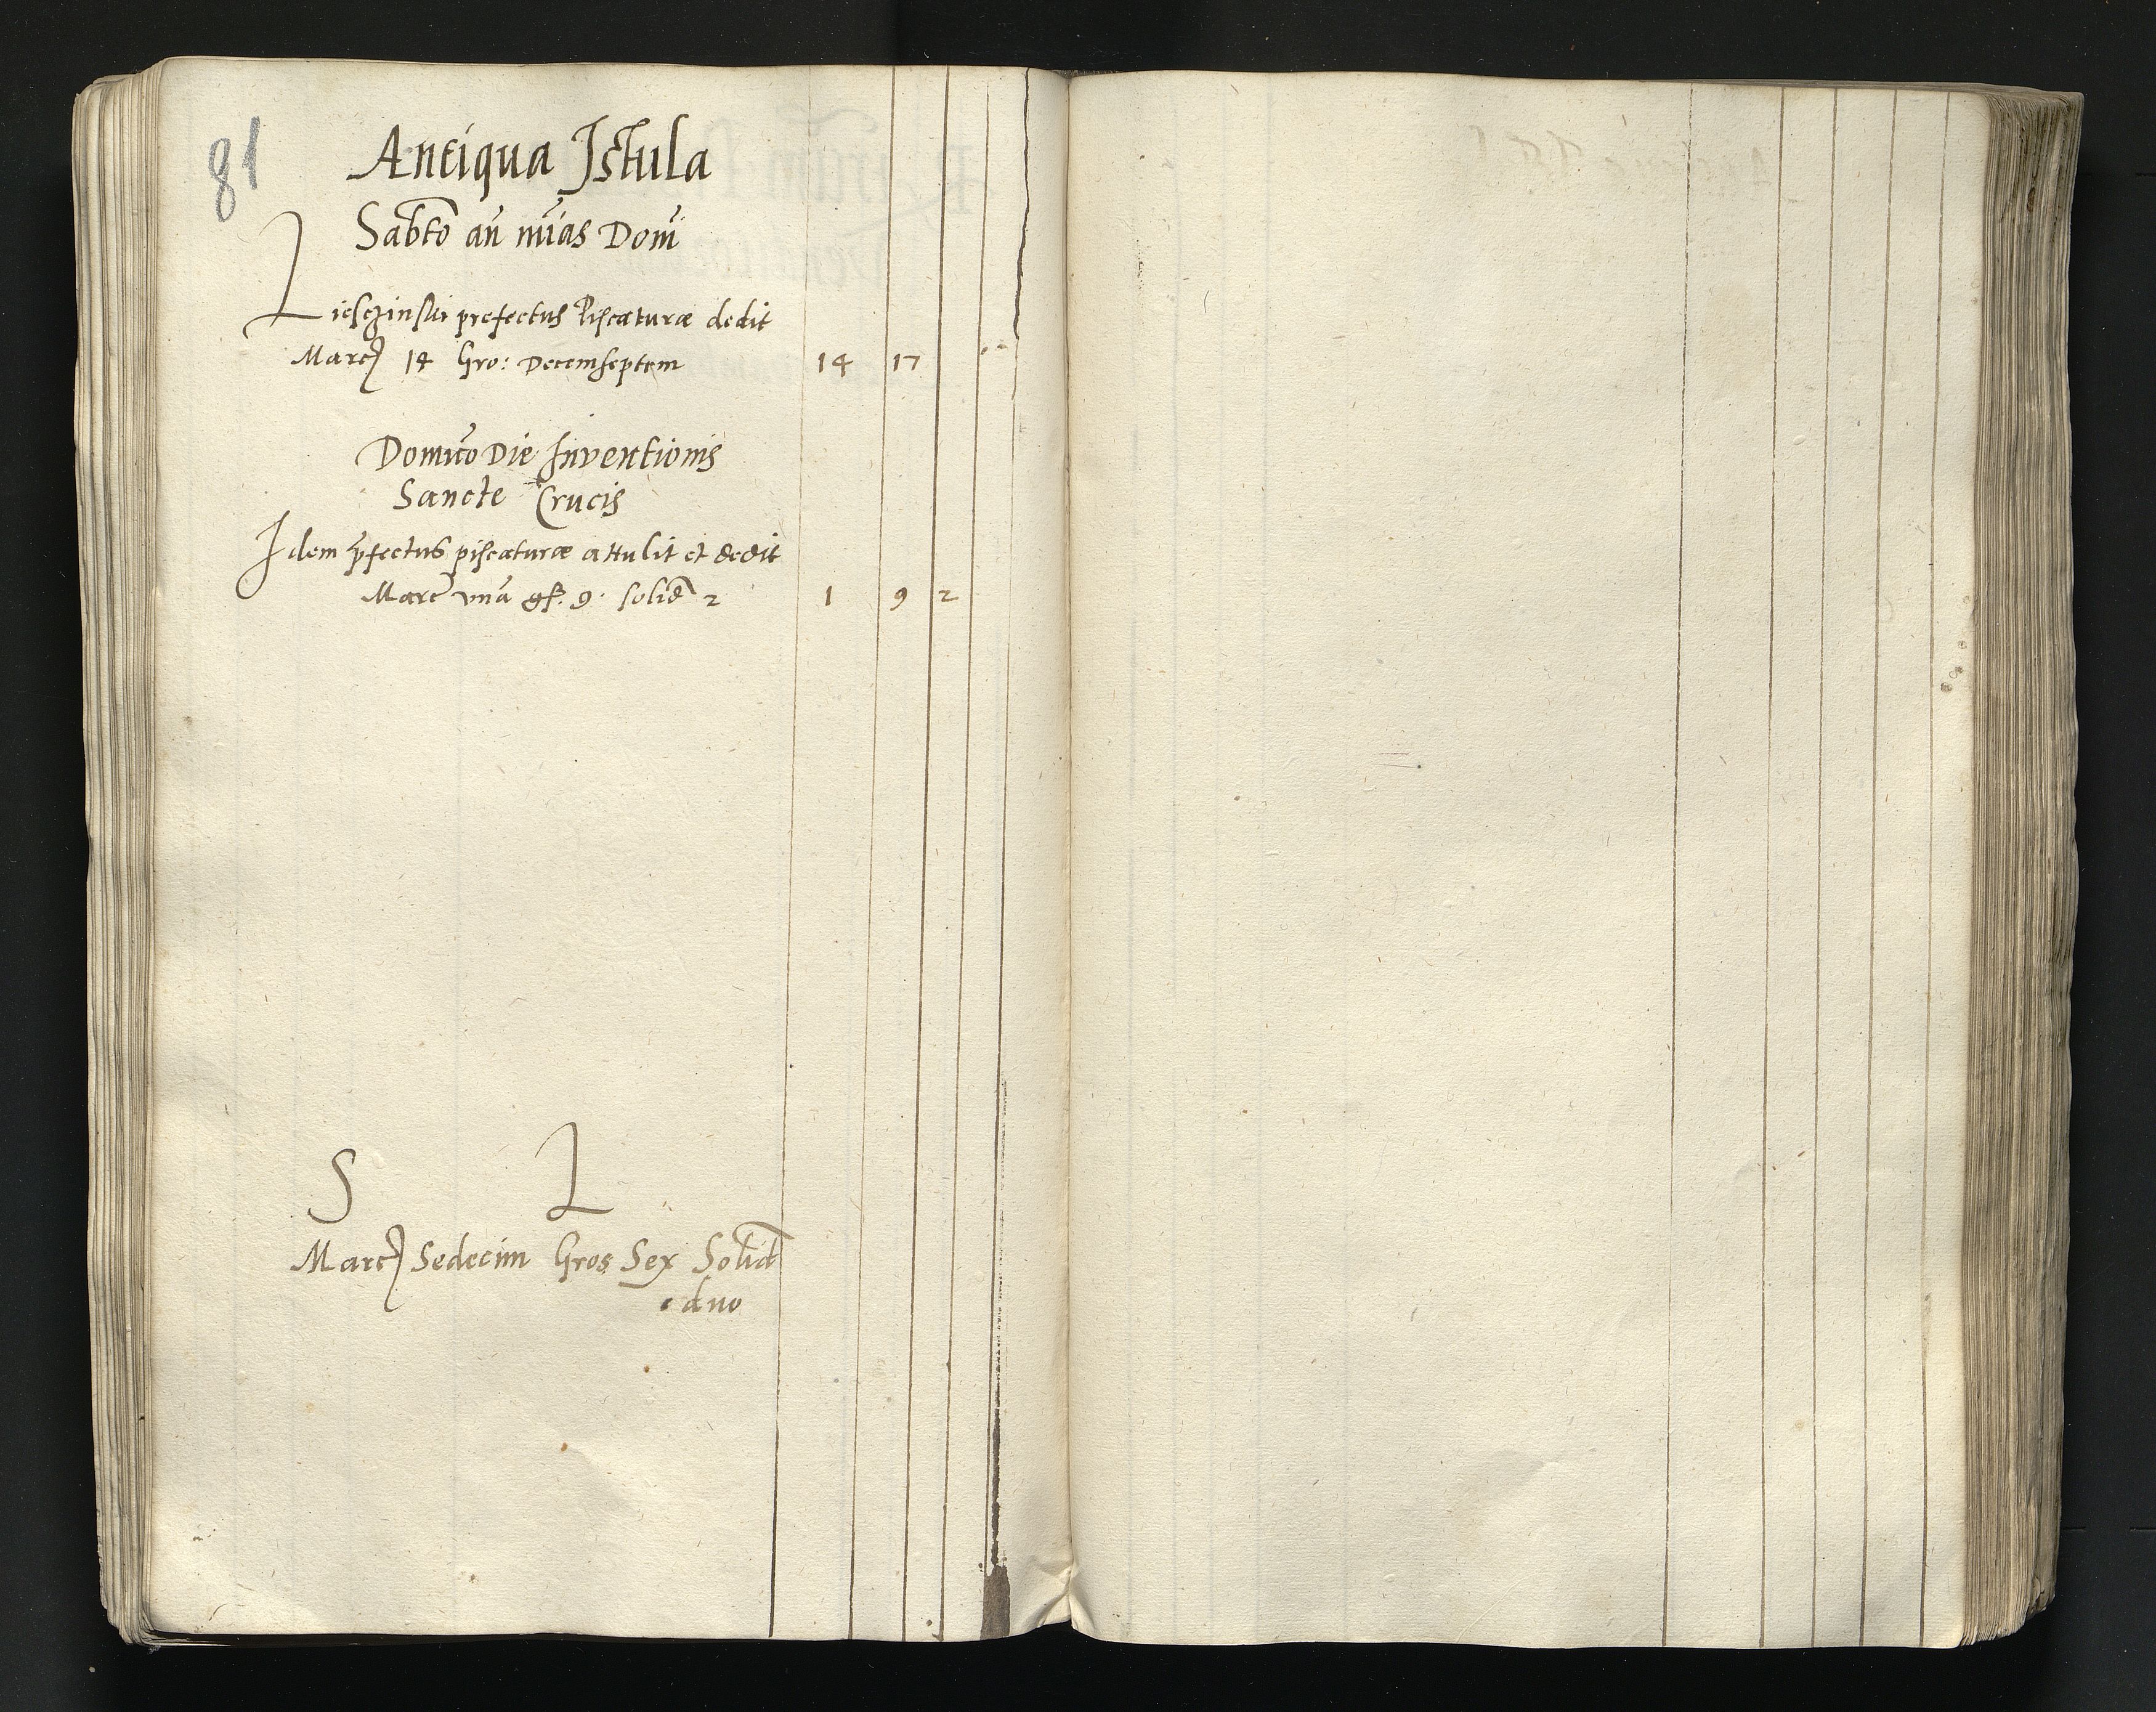 81
Antiqua Istula
Sabto an̄ nūias Domī
Liesczinski prefectus Piscaturæ dedit
Marc 14 Gro: Decemseptem 14 17
Domīco Die Inventionis
Sancte Crucis
Idem p̄fectus piscaturæ attulit et dedit
Marc̄ vnā gr. 9. solid 2 1 9 2
S L
Marc Sedecim Gros Sex Solid
duo